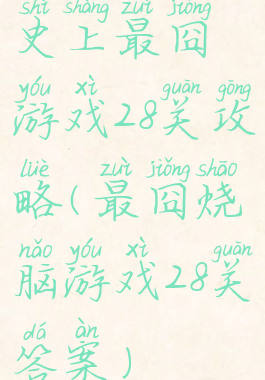 shǐ shàng zuì jiǒng
史上最囧
yóu xì guān gōng
游戏28关攻
lüè zuì jiǒng shāo
略(最囧烧
nǎo yóu xì guān
脑游戏28关
dá àn
答案)